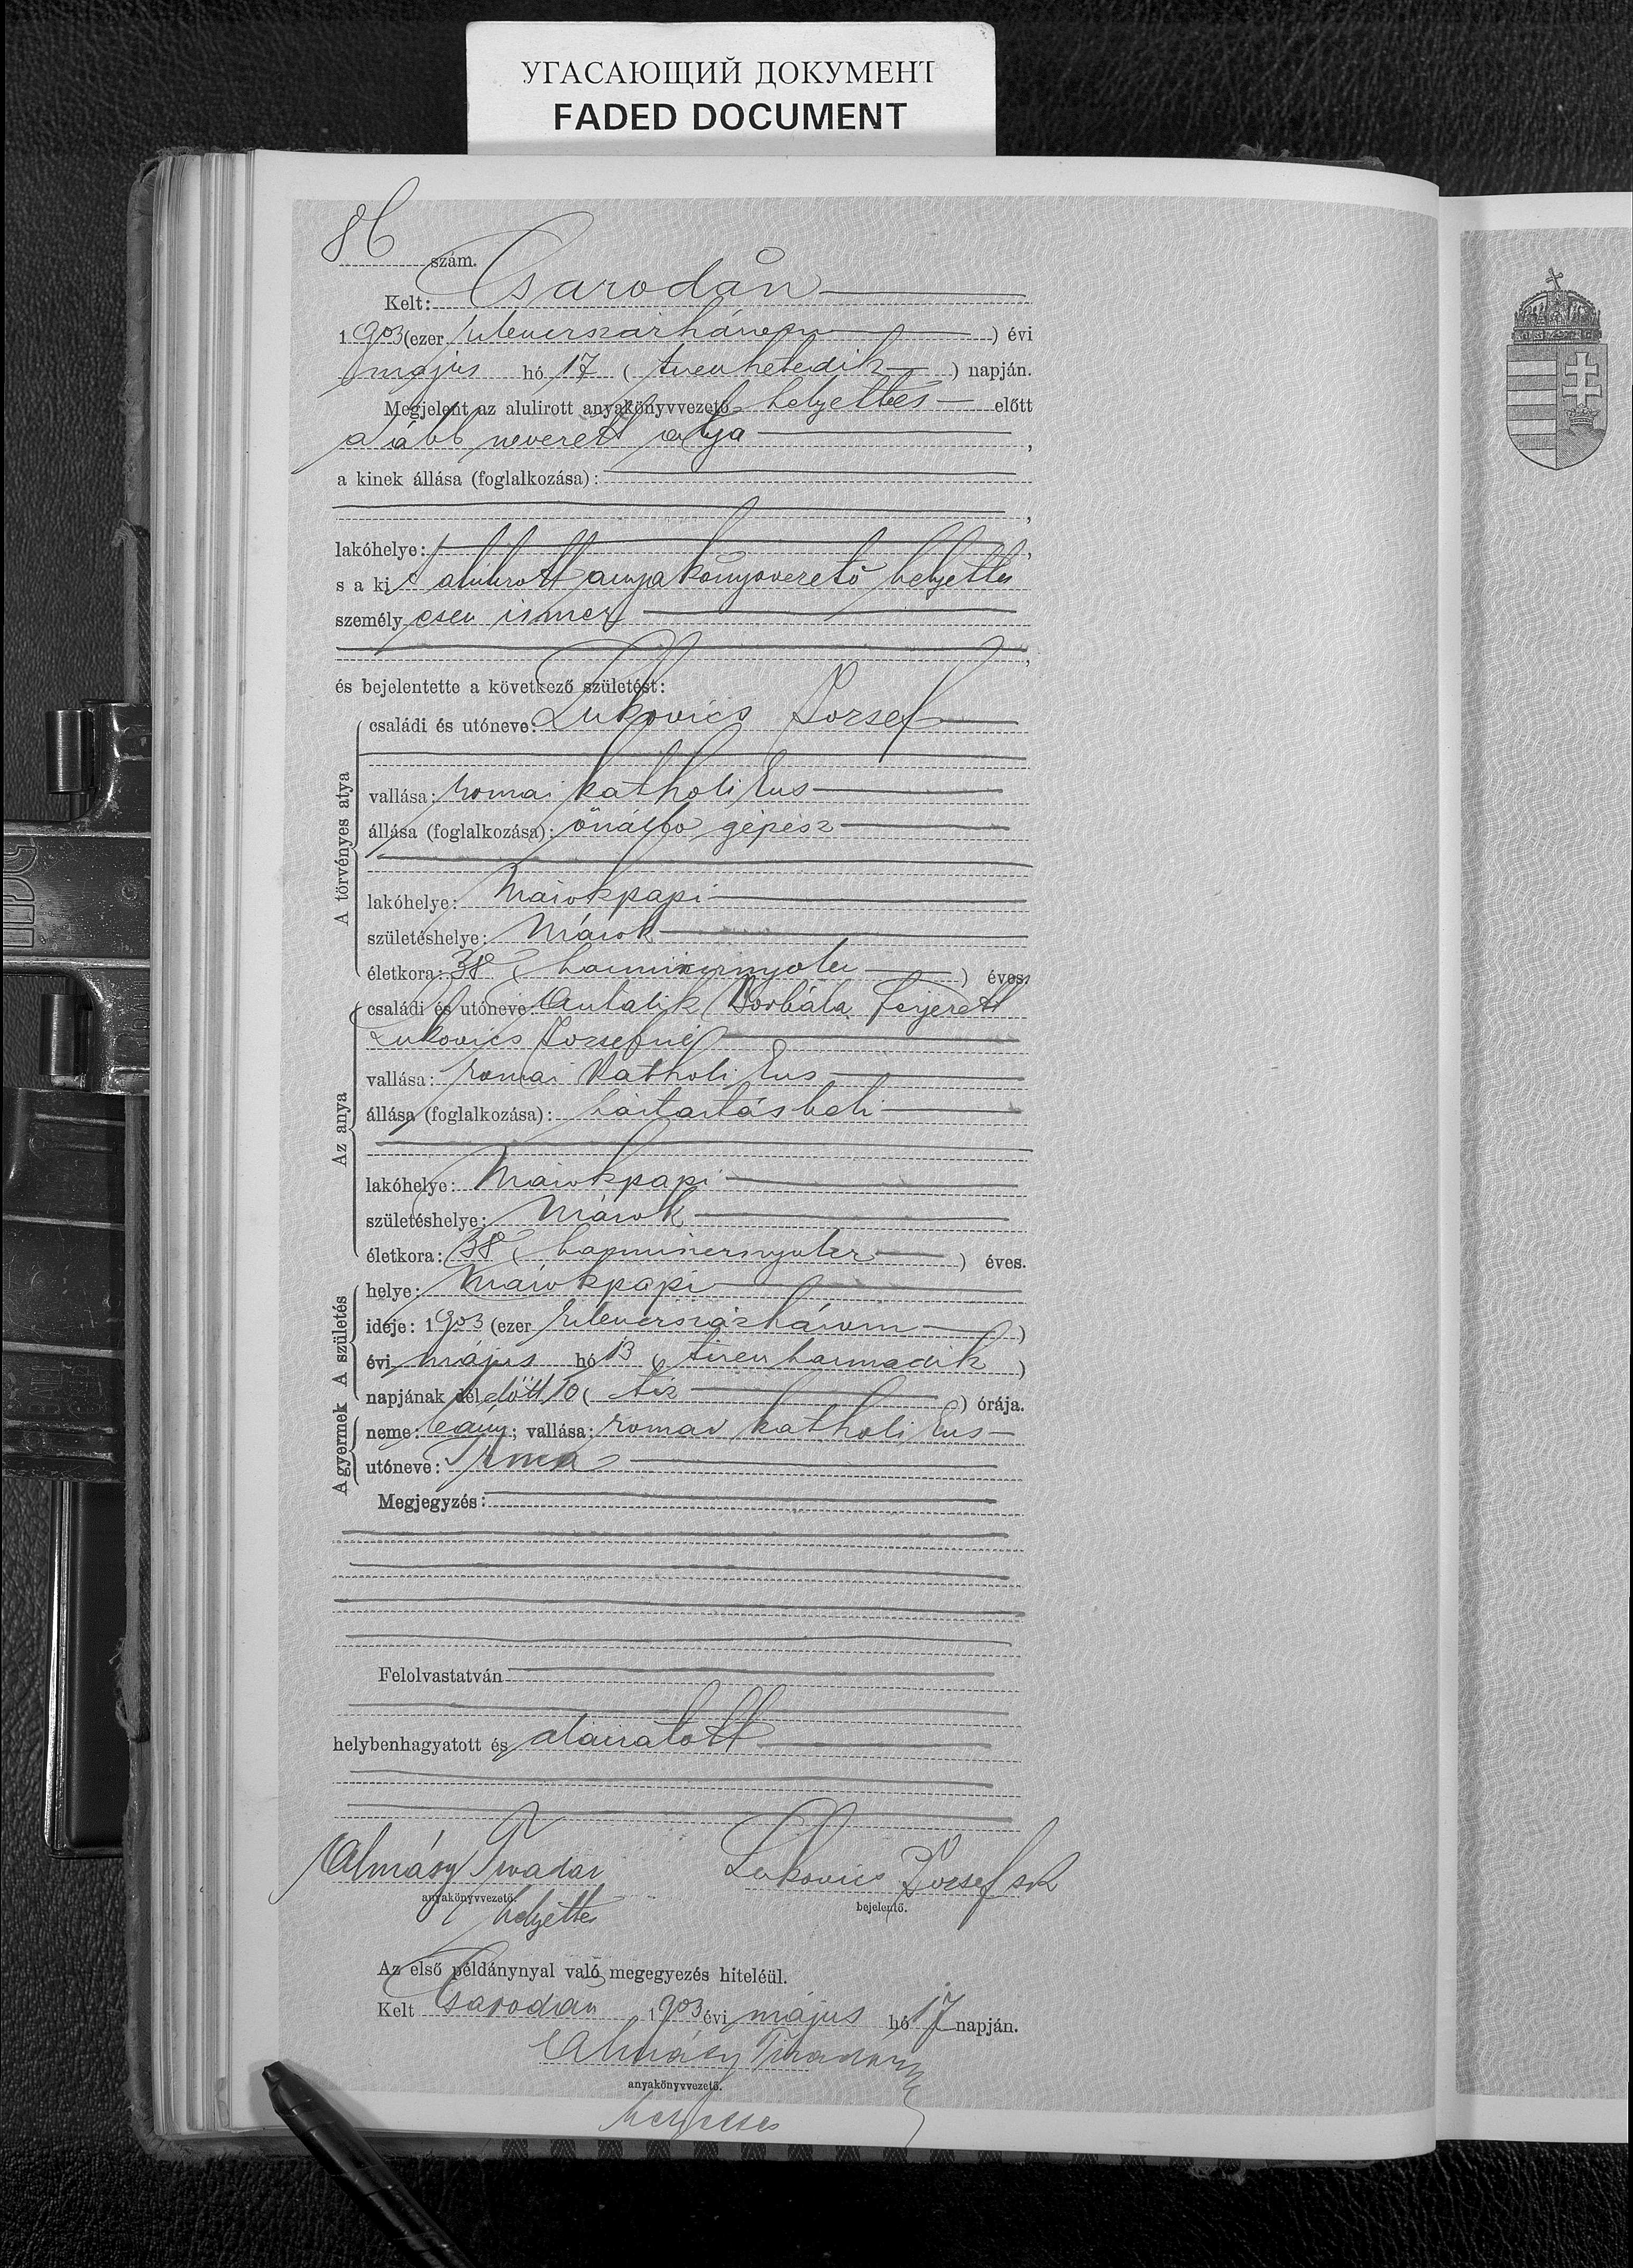 УГАСАЮЩИЙ ДОКУМЕНТ
FADED DOCUMENT
86 szám.
Kelt: Csarodán
1903 (ezer kilencszázhárom) évi
május hó 17 (tizenhetedik) napján.
Megjelent az alulirott anyakönyvvezető helyettes előtt
alább nevezett atyja,
a kinek állása (foglalkozása):
,
lakóhelye: ,
s a kit alulirott anyakönyvvezető helyettes
személyesen ismer
,
és bejelentette a következő születést:
A törvényes atya
családi és utóneve: Lukovics József
vallása: romai katholikus
állása (foglalkozása): önálló gépész
lakóhelye: Márokpapi
születéshelye: Márok
életkora: 38 (harmincznyolcz) éves.
Az anya
családi és utóneve: Antalik Borbála férjezett
Lukovics Józsefné
vallása: romai katholikus
állása (foglalkozása): háztartásbeli
lakóhelye: Márokpapi
születéshelye: Márok
életkora: 38 (harmincznyolcz) éves.
A születés
helye: Márokpapi
ideje: 1903 (ezer kilencszázhárom)
évi május hó 13 (tizenharmadik)
napjának délelőtt 10 (tíz) órája.
A gyermek
neme: leány; vallása: romai katholikus
utóneve: Irma
Megjegyzés:
Felolvastatván
helybenhagyatott és aláiratott
Almásy Tivadar Lukovics József sk
anyakönyvvezető. bejelentő.
helyettes
Az első példánynyal való megegyezés hiteléül.
Kelt Csarodán 1903 évi május hó 17 napján.
Almásy Tivadar
anyakönyvvezető.
helyettes